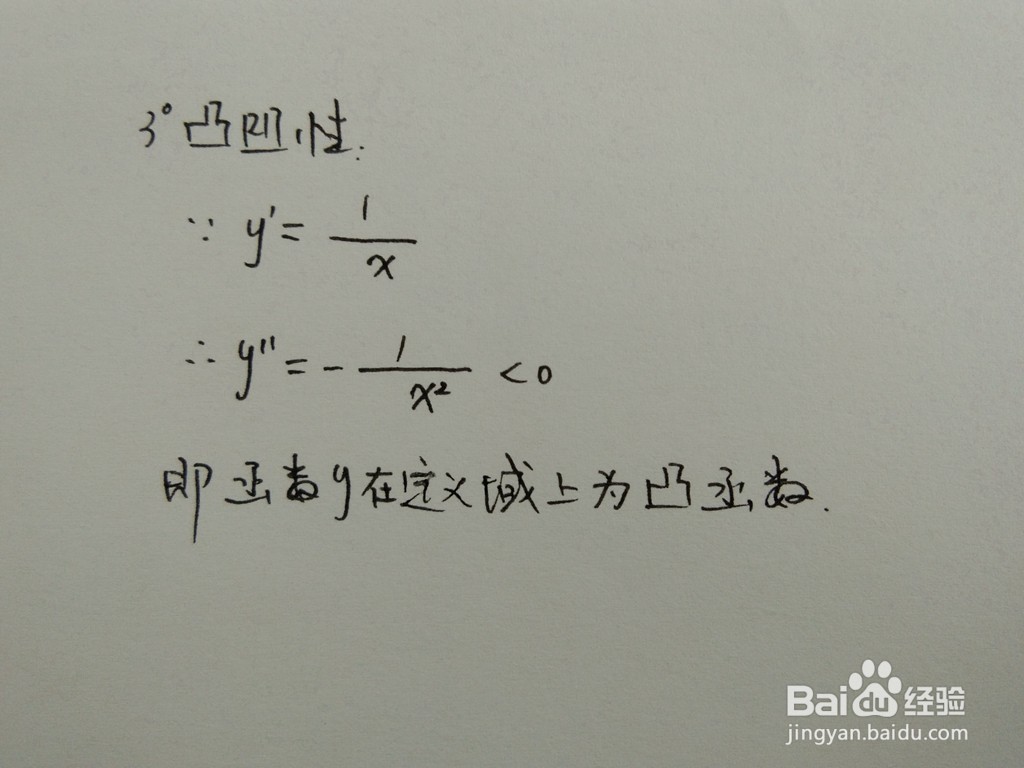 3° 凸凹性.
∵ y' = 1/x
∴ y'' = - 1/x² < 0
即函数y在定义域上为凸函数.
Bai du 经验
jingyan.baidu.com